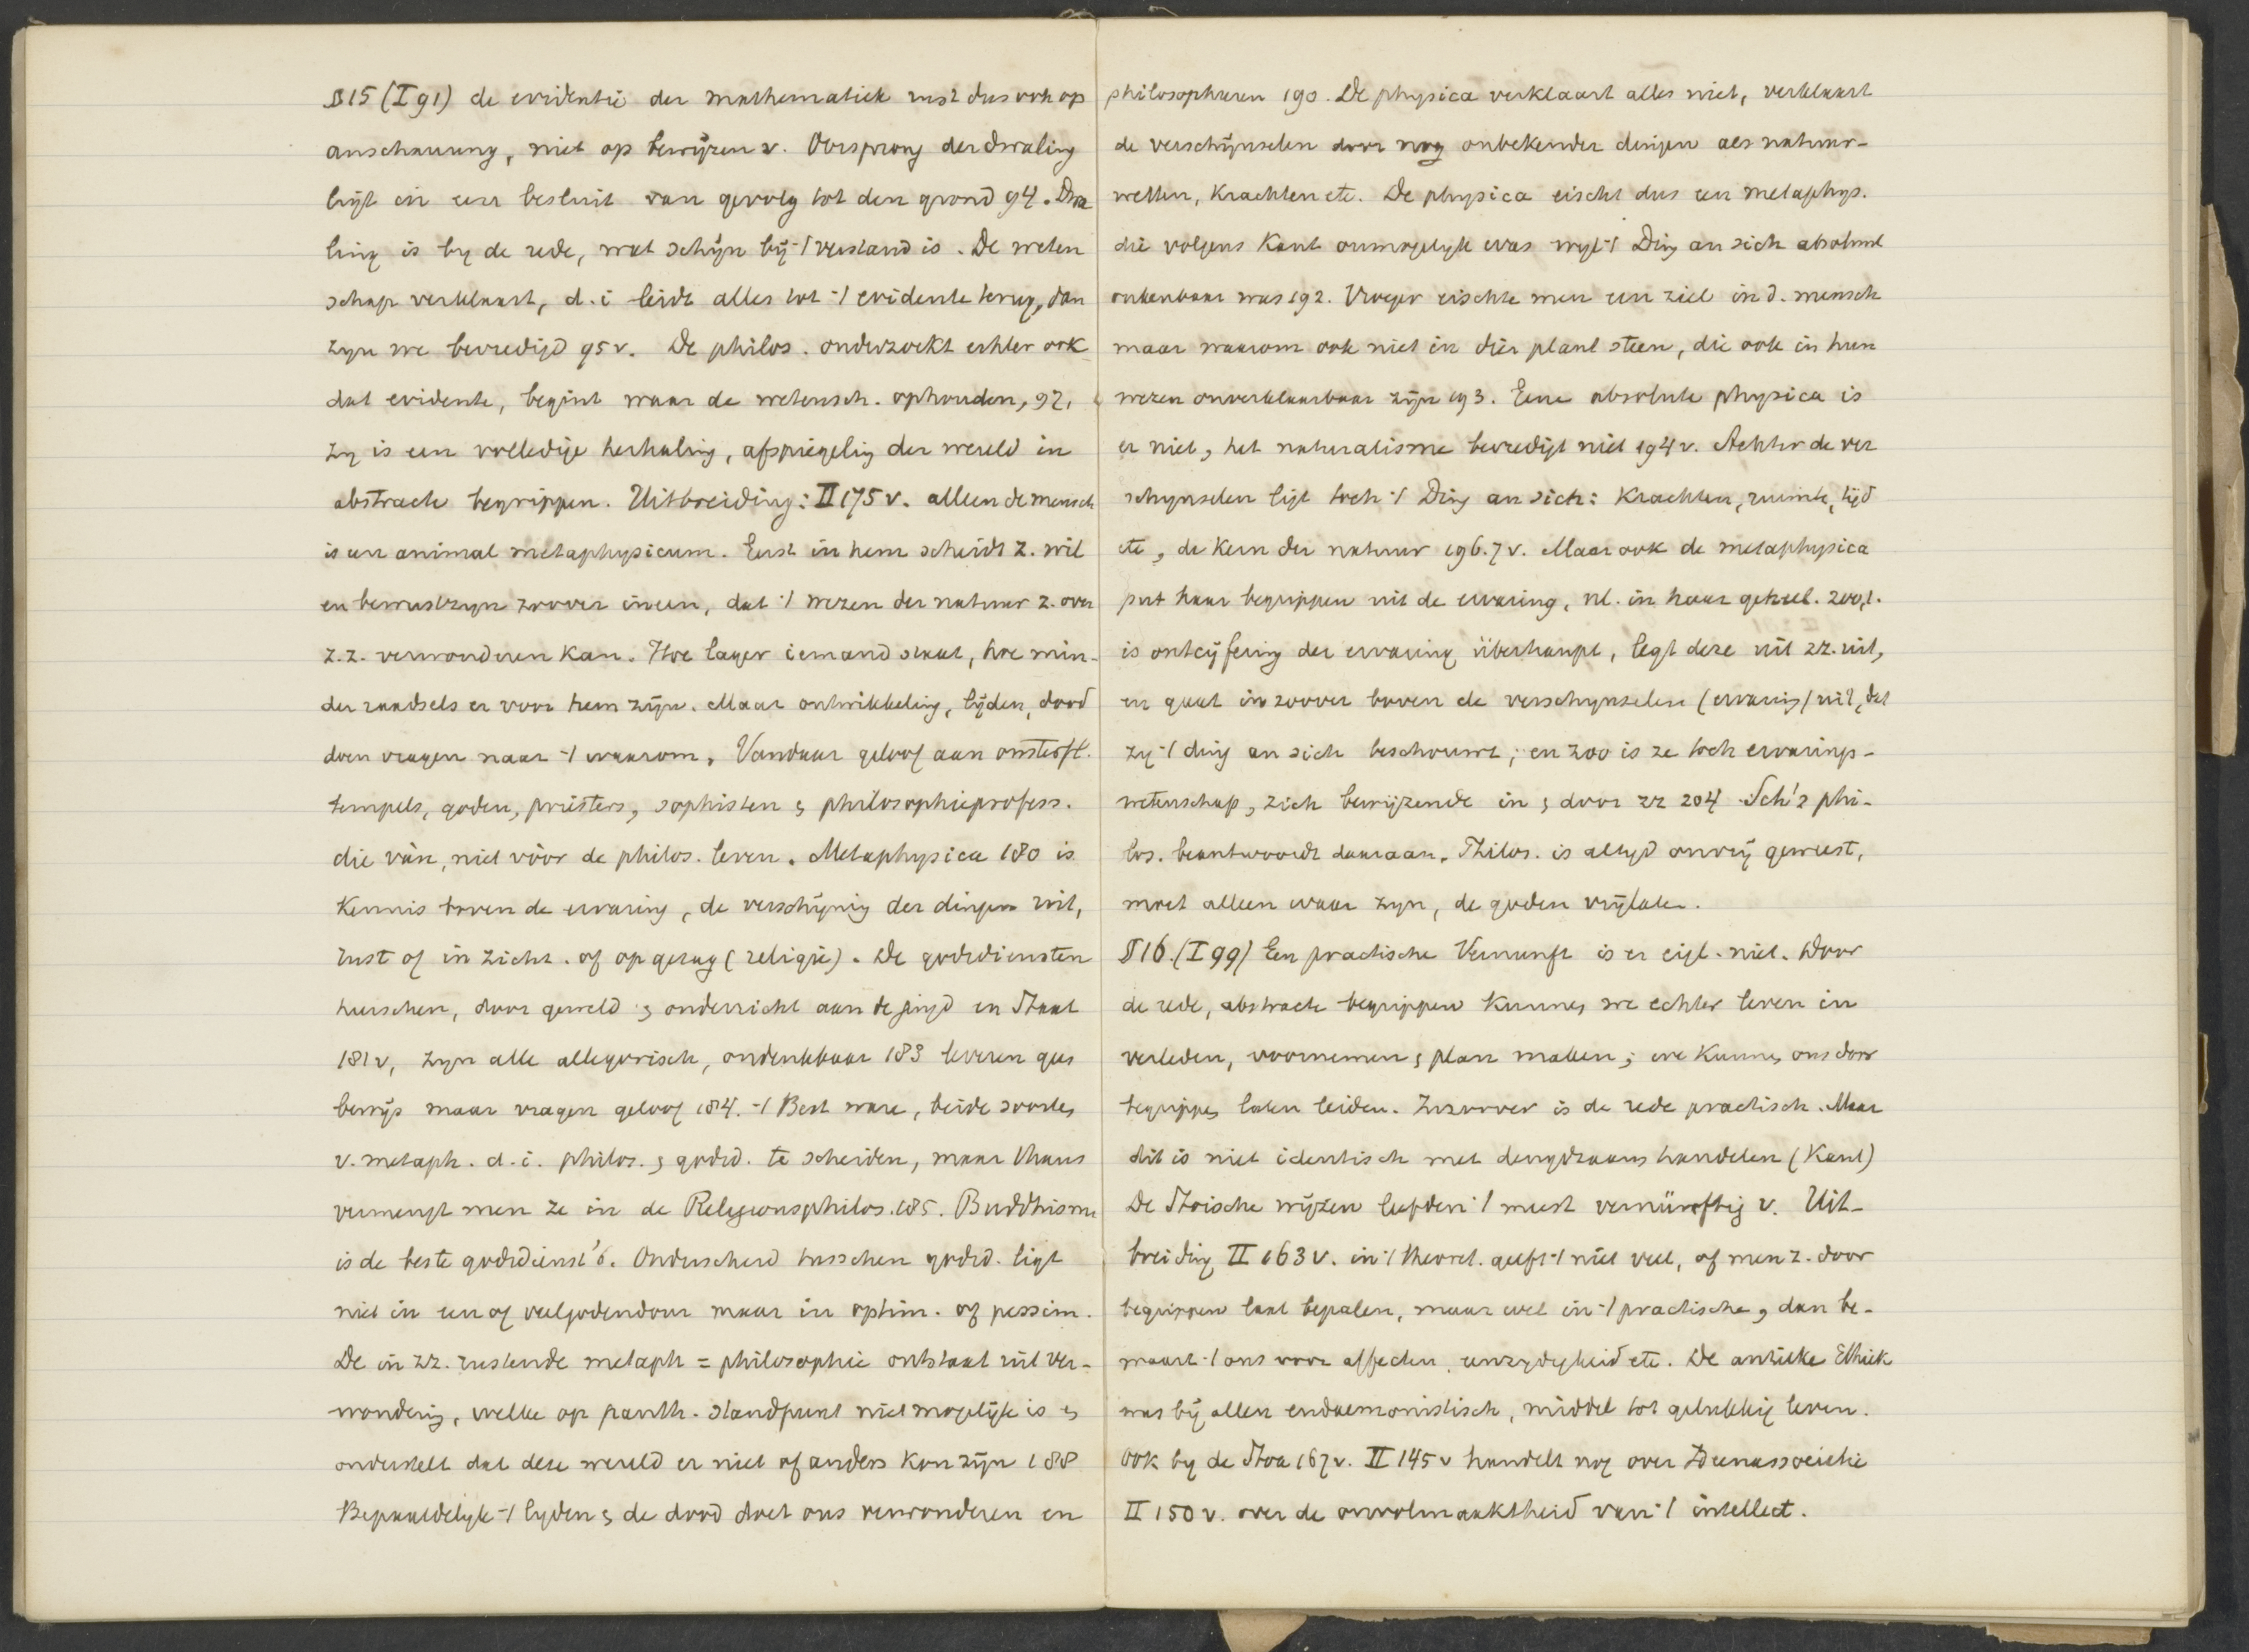 §15 (I 91) de evidentie der mathematiek rust dus ook op
anschauung, niet op bewijzen v. Oorsprong der dwaling
ligt in een besluit van gevolg tot den grond 94. Dwa
ling is by de rede, wat schijn bij 't verstand is. De weten
schap verklaart, d.i. leidt alles tot 't evidente terug, dan
zyn we bevredigd 95 v. De philos. onderzoekt echter ook
dat evidente, begint waar de wetensch. ophouden, 97,
zy is een volledige herhaling, afspiegeling der wereld in
abstracte begrippen. Uitbreiding: II 175 v. alleen de mensch
is een animal metaphysicum. Eerst in hem scheidt z. wil
en bewustzyn zoover ineen, dat 't wezen der natuur z. over
z.z. verwonderen kan. Hoe lager iemand staat, hoe min-
der raadsels er voor hem zijn. Maar ontwikkeling, lijden, dood
doen vragen naar 't waarom. Vandaar geloof aan onsterfl.
tempels, goden, priesters, sophisten & philosophieprofess.
die vàn, niet vòòr de philos. leven. Metaphysica 180 is
Kennis boven de ervaring, de verschijning der dingen uit,
rust of in zichz. of op gezag (religie). De godsdiensten
heerschen, door geweld & onderricht aan de jeugd en Staat
181 v, zyn alle allegorisch, ondenkbaar 183 leveren geen
bewijs maar vragen geloof 184. 't Best ware, beide soorten
v. metaph. d.i. philos. & godsd. te scheiden, maar thans
vermengt men ze in de Religionsphilos. 185. Buddhisme
is de beste godsdienst 6. Onderscheid tusschen godsd. ligt
niet in een of veelgodendom maar in optim. of pessim.
De in zz. rustende metaph = philosophie ontstaat uit ver-
wondering, welke op panth. standpunt niet mogelijk is &
onderstelt dat deze wereld er niet of anders kon zijn 188
Bepaaldelyk 't lyden & de dood doet ons verwonderen en
philosopheren 190. De physica verklaart alles niet, verklaart
de verschijnselen door nog onbekender dingen als natuur-
wetten, Krachten etc. De physica eischt dus een metaphys.
die volgens Kant onmogelyk was wyl 't Ding an sich absoluut
onkenbaar was 192. Vroeger eischte men een ziel in d. mensch
maar waarom ook niet in dier plant steen, die ook in hun
wezen onverklaarbaar zijn 193. Eene absolute physica is
er niet, het naturalisme bevredigt niet 194 v. Achter de ver
schynselen ligt toch 't Ding an sich: Krachten, ruimte, tijd
etc, de Kern der natuur 196.7 v. Maar ook de metaphysica
put haar begrippen uit de ervaring, nl. in haar geheel. 200,1.
is ontcijfering der ervaring überhaupt, legt deze uit zz. uit,
en gaat in zoover boven de verschynselen (ervaring) uit, dat
zy 't ding an sich beschouwt; en zoo is ze toch ervarings-
wetenschap, zich bewijzende in & door zz 204 Sch's phi-
los. beantwoordt daaraan. Philos. is altyd onvrij geweest,
moet alleen waar zyn, de goden vrijlaten.
§16. (I 99) Een practische Vernunft is er eigl. niet. Door
de rede, abstracte begrippen Kunnen we echter leven in
verleden, voornemen & plan maken; we Kunnen ons door
begrippen laten leiden. Inzoover is de rede practisch. Maar
dit is niet identisch met deugdzaam handelen (Kant)
De Stoische wijzen leefden 't meest vernünftig v. Uit-
breiding II 163 v. in 't theoret. geeft 't niet veel, of men z. door
begrippen laat bepalen, maar wel in 't practische, dan be-
waart 't ons voor affecten, eenzydigheid etc. De antieke Ethiek
was bij allen eudaemonistisch, middel tot gelukkig leven.
Ook by de Stoa 167 v. II 145 v handelt nog over Ideenassociatie
II 150 v. over de onvolmaaktheid van 't intellect.